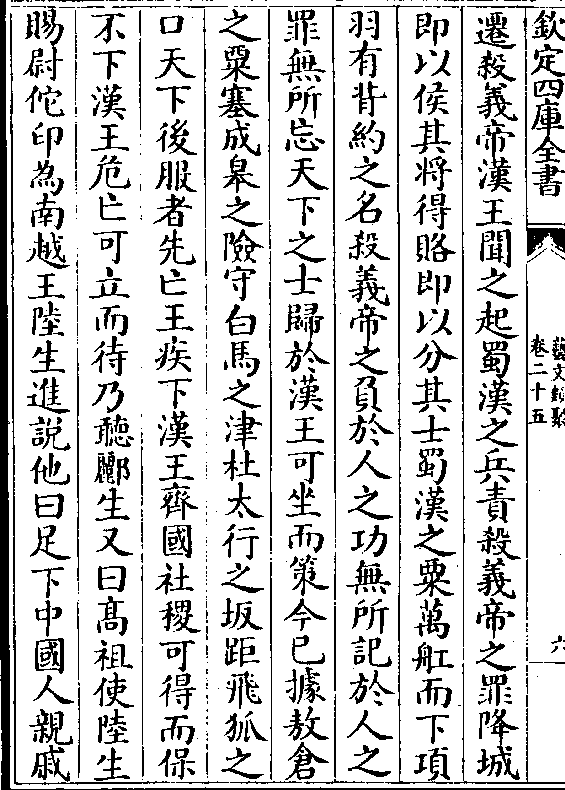 欽定四庫全書
藝文類聚
卷二十五
六
遷殺義帝漢王聞之起蜀漢之兵責殺義帝之罪降城
即以侯其將得賂即以分其士蜀漢之粟萬舡而下項
羽有背約之名殺義帝之負於人之功無所記於人之
罪無所忘天下之士歸於漢王可坐而策今已據敖倉
之粟塞成皋之險守白馬之津杜太行之坂距飛狐之
口天下後服者先亡王疾下漢王齊國社稷可得而保
不下漢王危亡可立而待乃聽酈生又曰髙祖使陸生
賜尉佗印為南越王陸生進說他曰足下中國人親戚